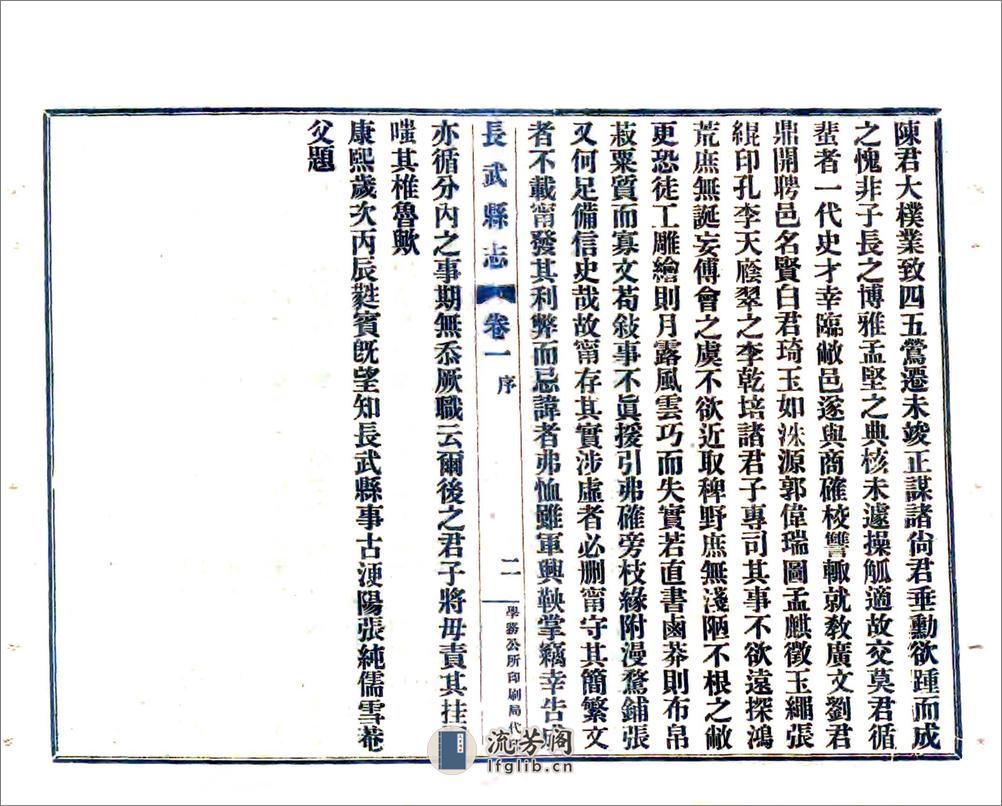 陳君大樸業致四五鶯遷未竣正謀諸尙君垂勳欲踵而成
之愧非子長之博雅孟堅之典核未遽操觚適故交莫君循
蜚者一代史才幸臨敝邑遂與商確校讐輙就敎廣文劉君
鼎開聘邑名賢白君琦玉如洙源郭偉瑞圖孟麒徵玉繩張
緄印孔李天廕翠之李乾培諸君子專司其事不欲遠探鴻
荒庶無誕妄傅會之虞不欲近取稗野庶無淺陋不根之敝
更恐徒工雕繪則月露風雲巧而失實若直書鹵莽則布帛
菽粟質而寡文苟敍事不眞援引弗確旁枝緣附漫騖鋪張
又何足備信史哉故甯存其實涉虛者必刪甯守其簡繁文
者不載甯發其利弊而忌諱者弗恤雖軍興鞅掌竊幸告成
長武縣志 卷一 序 二 學務公所印刷局代
亦循分內之事期無忝厥職云爾後之君子將毋責其挂
嗤其椎魯歟
康熙歲次丙辰蕤賓旣望知長武縣事古浭陽張純儒雪菴
父題
流芳阁
lfglib.cn